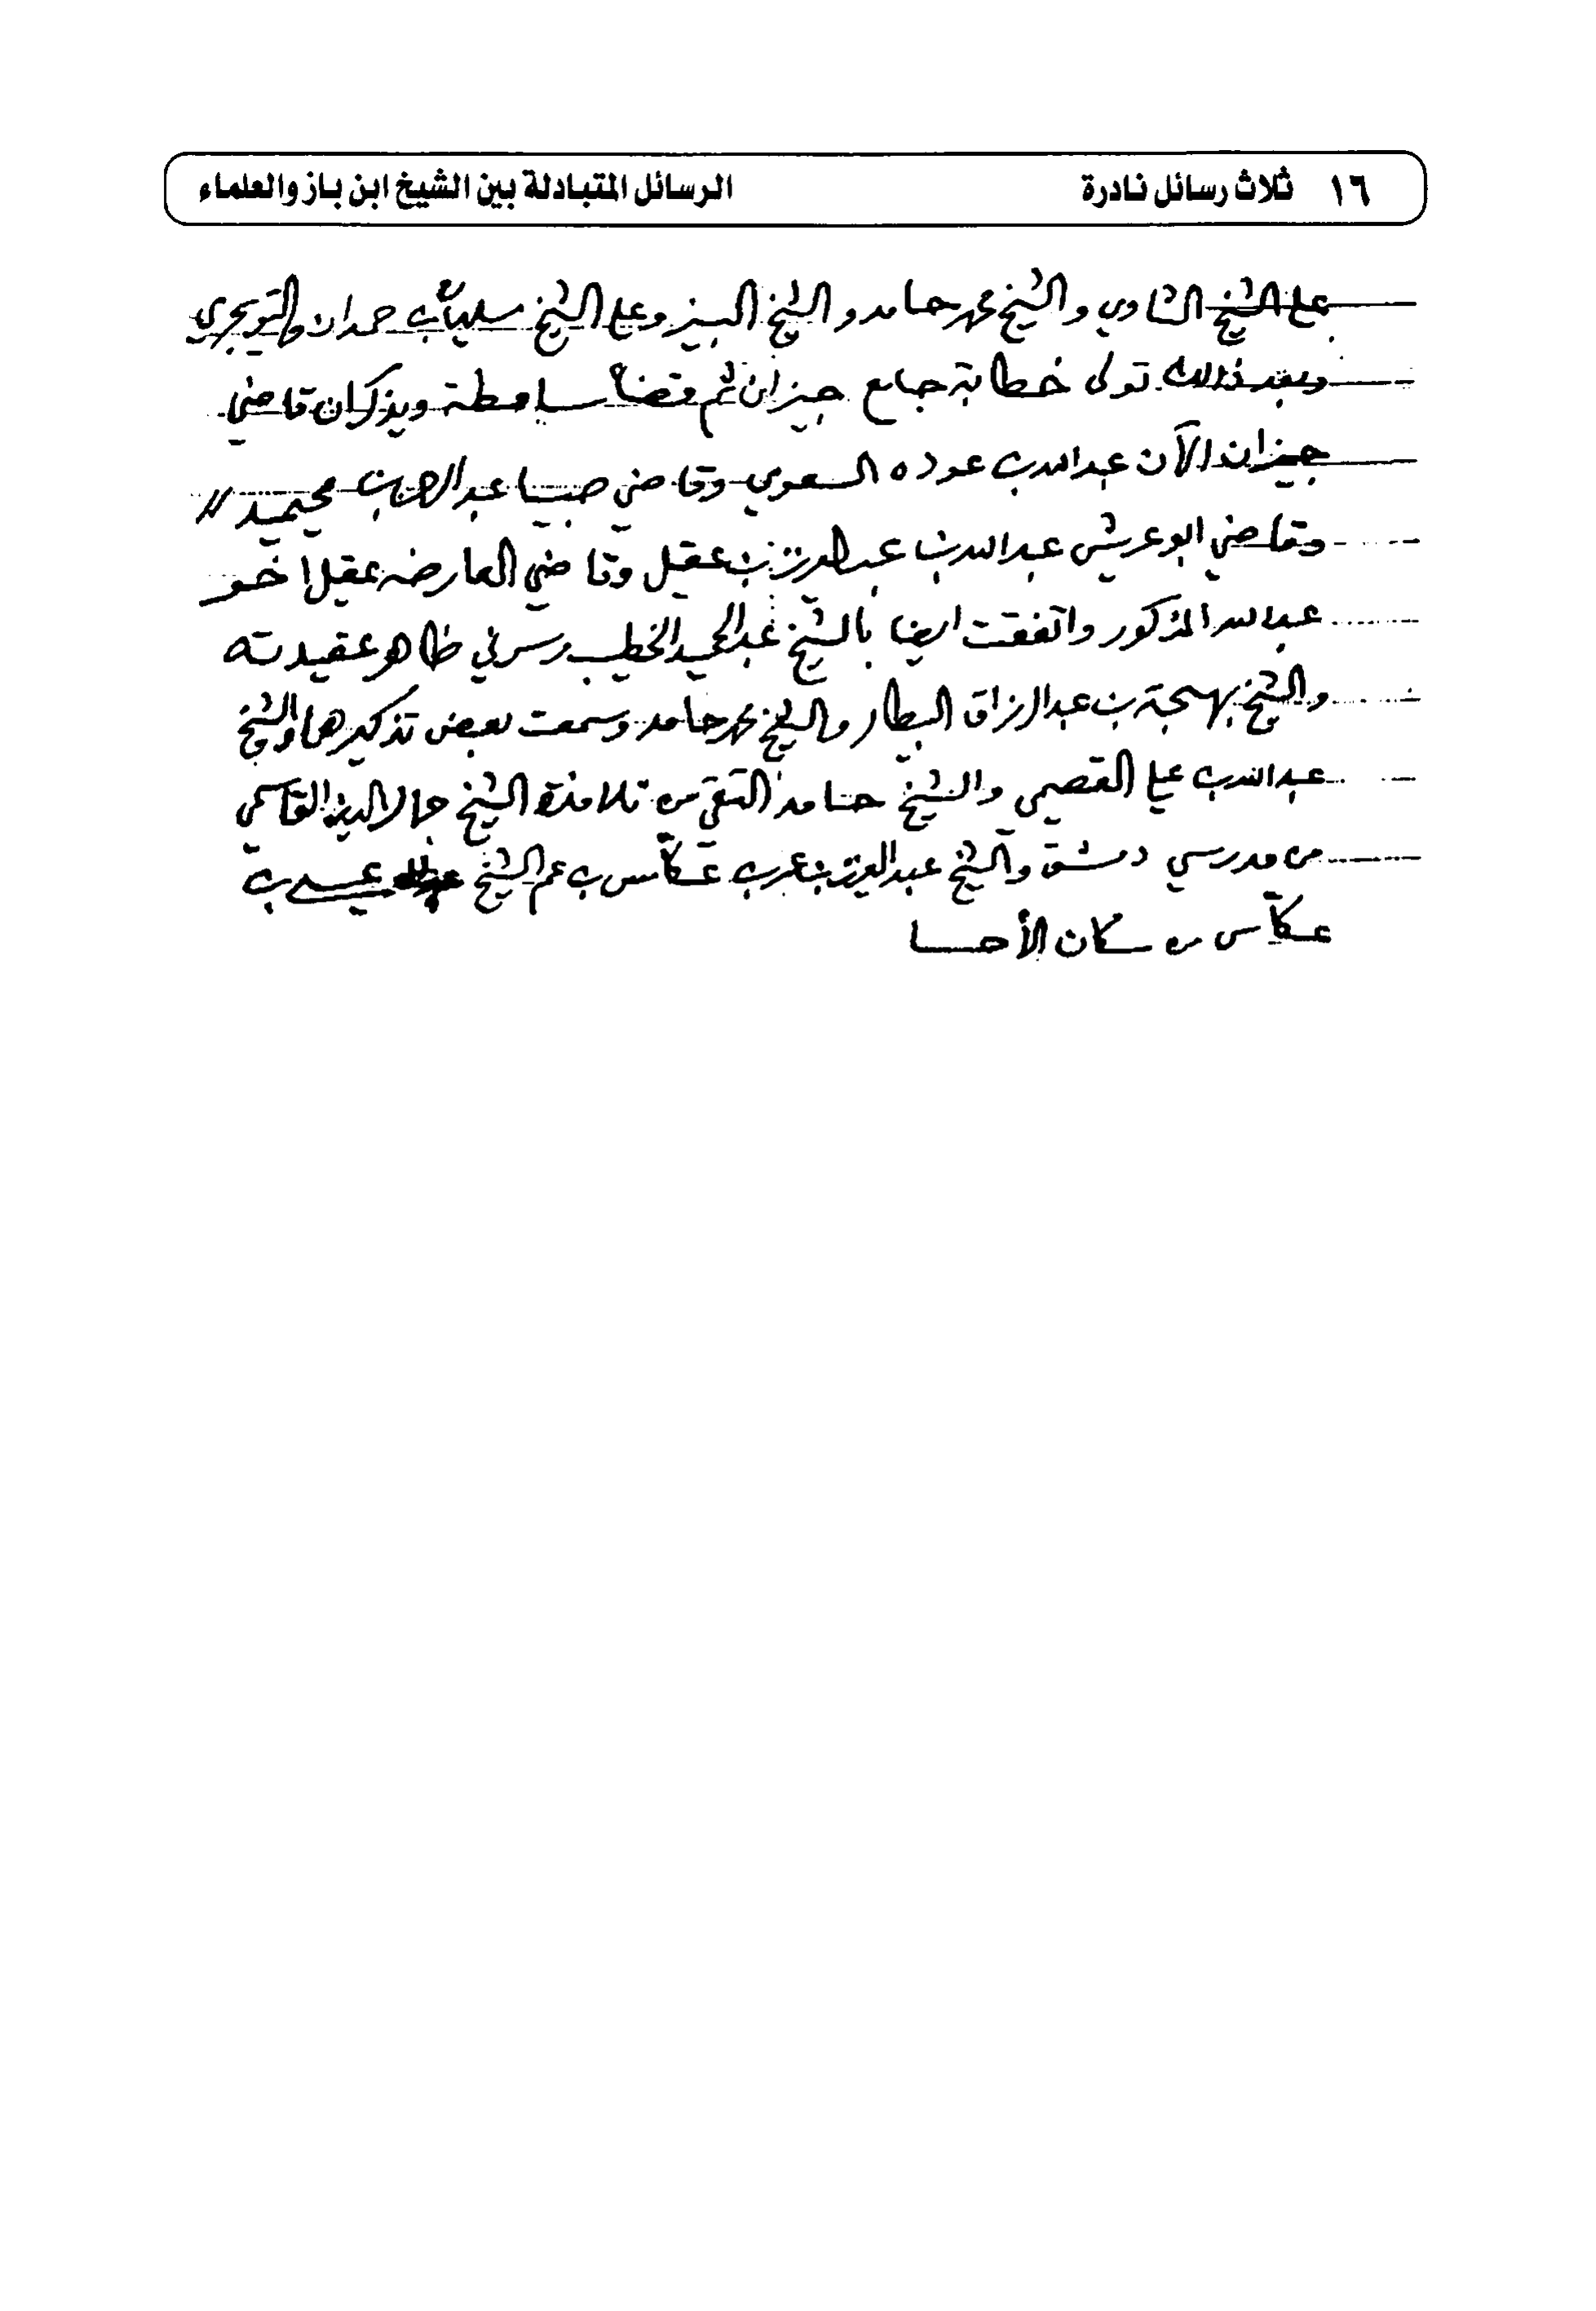 ١٦ ثلاث رسائل نادرة الرسائل المتبادلة بين الشيخ ابن باز والعلماء
على الشيخ الشاوي والشيخ محمد حامد والشيخ البيز وعلى الشيخ سليمان بن حمدان والتويجري
وبعد ذلك تولى خطابة جامع جيزان ثم قضا سامطة ويذكر ان قاضي
جيزان الآن عبدالله بن عوده السعوي وقاضي صبيا عبدالرحمن بن محيميد //
وقاضي ابو عريش عبدالله بن عبدالعزيز بن عقيل وقاضي العارضه عقيل اخو
عبدالله المذكور واتفقت ايضا بالشيخ عبدالحميد الخطيب وسرني ظاهر عقيدته
والشيخ بهجة بن عبدالرزاق البيطار والشيخ محمد حامد وسمعت بعض تذكيرهما والشيخ
عبدالله بن علي القصيمي والشيخ حامد التقي من تلامذة الشيخ جمال الدين القاسمي
من مدرسي دمشق والشيخ عبدالعزيز بن عمر بن عكاس بن عم الشيخ عيسى بن
عكاس من سكان الأحسا